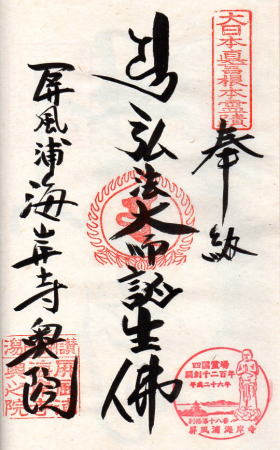 大日本眞言根本霊蹟
奉納
弘法大師誕生佛
屏風浦 海岸寺奥院
四国霊場
開創千二百年
平成二十六年
別格第十八番
屏風浦海岸寺